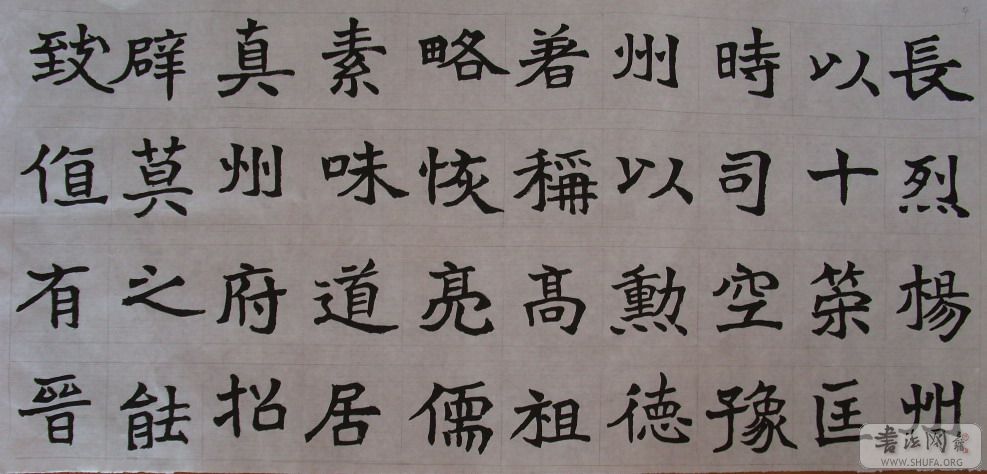 長烈楊州
以十策匡
時司空豫
州以勳德
著稱高祖
略恢亮儒
素味道居
真州府招
辟莫之能
致值有晉
書法网
WWW.SHUFA.ORG